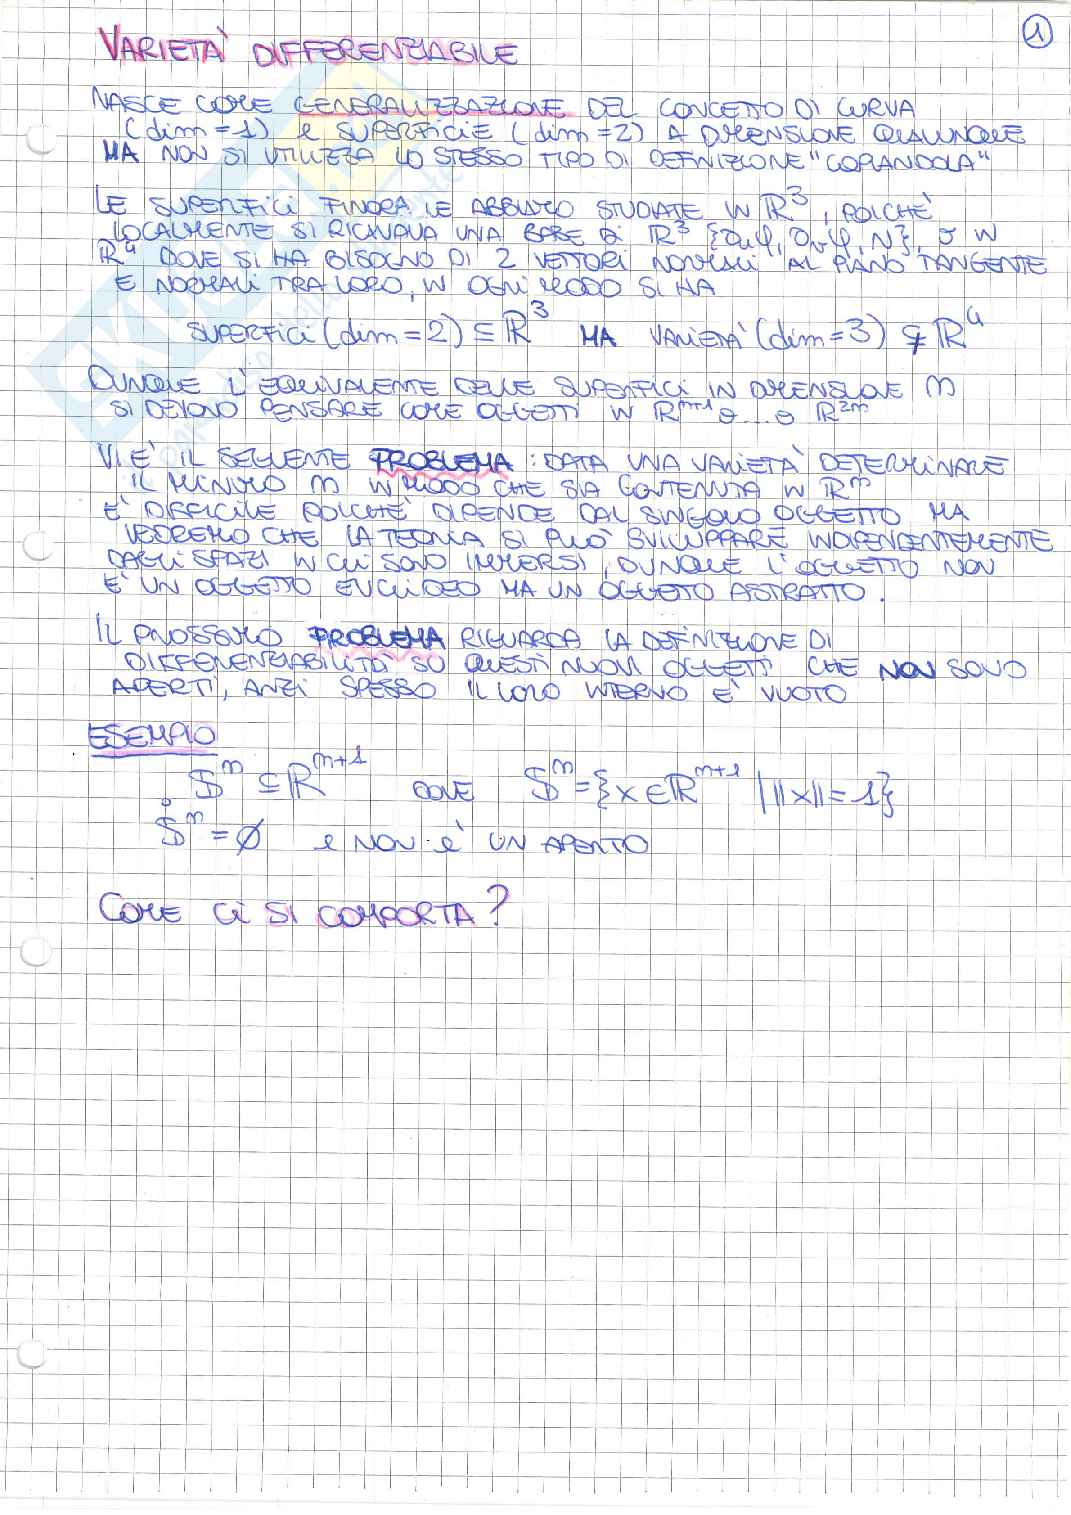 1
VARIETÀ DIFFERENZIABILE
NASCE COME GENERALIZZAZIONE DEL CONCETTO DI CURVA
(dim=1) e SUPERFICIE (dim=2) A DIMENSIONE QUALUNQUE
MA NON SI UTILIZZA LO STESSO TIPO DI DEFINIZIONE "COPIANDOLA"
LE SUPERFICI FINORA LE ABBIAMO STUDIATE IN ℝ³, POICHÈ
LOCALMENTE SI RICAVAVA UNA BASE DI ℝ³ {∂uφ, ∂vφ, N}, O IN
ℝ⁴ DOVE SI HA BISOGNO DI 2 VETTORI NORMALI AL PIANO TANGENTE
E NORMALI TRA LORO, IN OGNI MODO SI HA
SUPERFICI (dim=2) ⊆ ℝ³ MA VARIETÀ (dim=3) ⊈ ℝ⁴
DUNQUE L'EQUIVALENTE DELLE SUPERFICI IN DIMENSIONE n
SI DEVONO PENSARE COME OGGETTI IN ℝⁿ⁺¹ o ... o ℝ²ⁿ
VI È IL SEGUENTE PROBLEMA: DATA UNA VARIETÀ DETERMINARE
IL MINIMO m IN MODO CHE SIA CONTENUTA IN ℝᵐ
È DIFFICILE POICHÈ DIPENDE DAL SINGOLO OGGETTO MA
VEDREMO CHE LA TEORIA SI PUÒ SVILUPPARE INDIPENDENTEMENTE
DAGLI SPAZI IN CUI SONO IMMERSI, DUNQUE L'OGGETTO NON
È UN OGGETTO EUCLIDEO MA UN OGGETTO ASTRATTO.
IL PROSSIMO PROBLEMA RIGUARDA LA DEFINIZIONE DI
DIFFERENZIABILITÀ SU QUESTI NUOVI OGGETTI CHE NON SONO
APERTI, ANZI SPESSO IL LORO INTERNO È VUOTO
ESEMPIO
𝕊ⁿ ⊆ ℝⁿ⁺¹ DOVE 𝕊ⁿ = {x ∈ ℝⁿ⁺¹ | ||x|| = 1}
𝕊̊ⁿ = ∅ e NON è UN APERTO
COME CI SI COMPORTA?